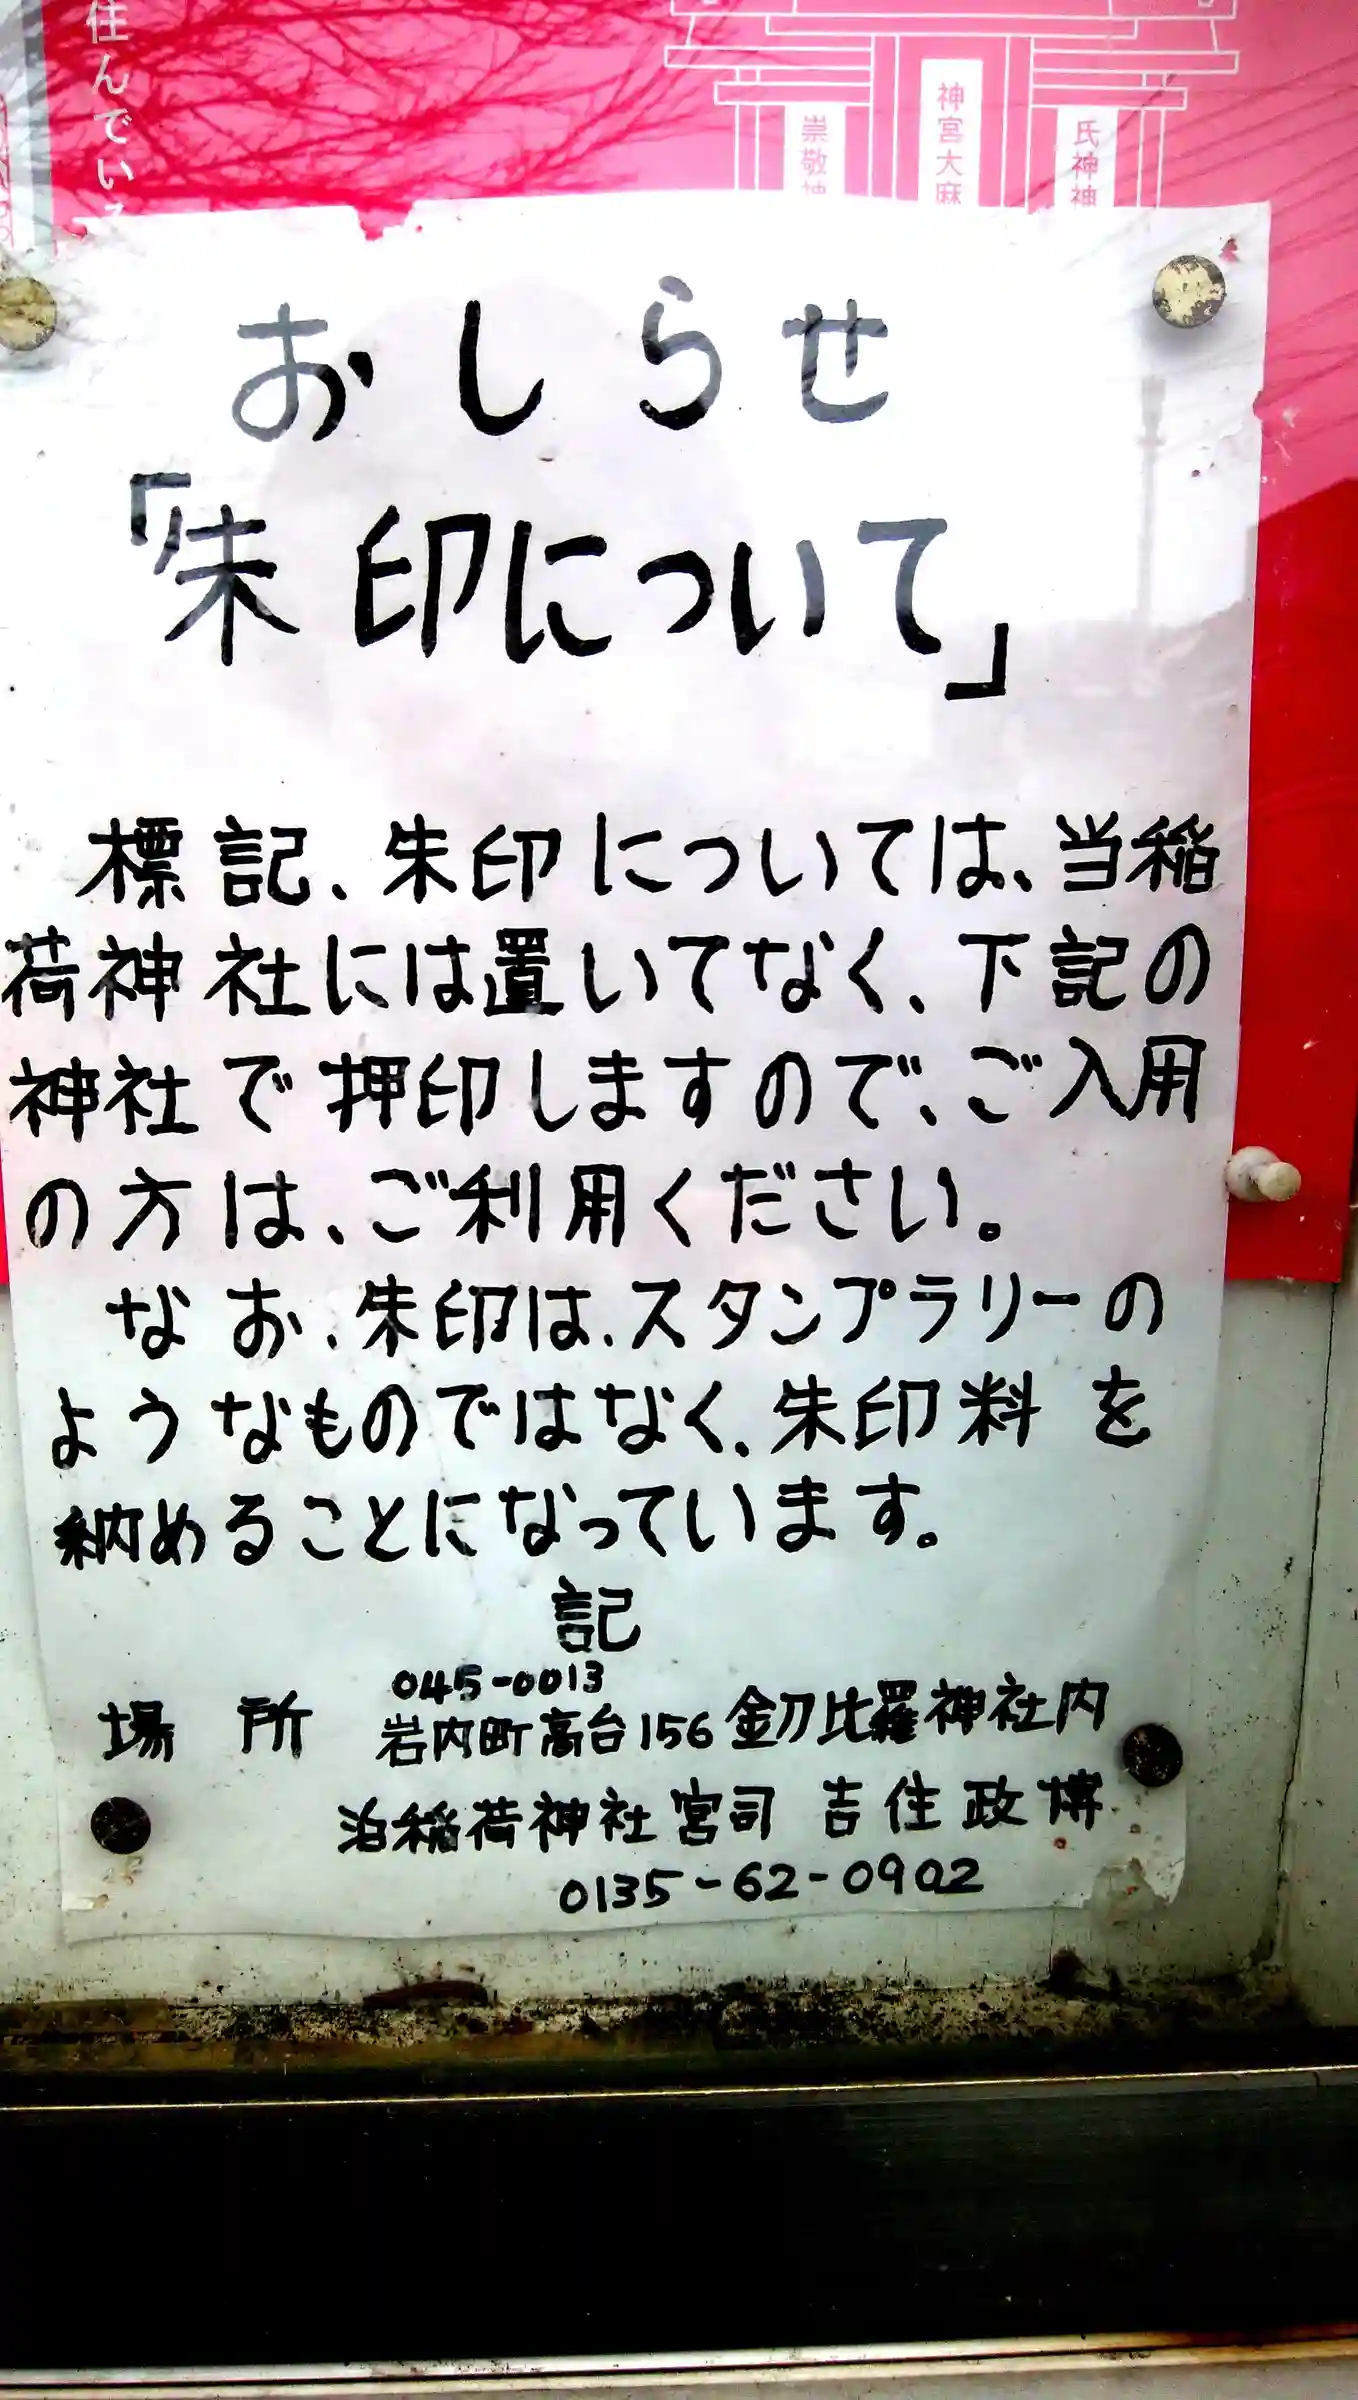 住んでい
崇敬神
神宮大麻
氏神神
おしらせ
「朱印について」
標記、朱印については、当稲
荷神社には置いてなく、下記の
神社で押印しますので、ご入用
の方は、ご利用ください。
なお、朱印は、スタンプラリーの
ようなものではなく、朱印料を
納めることになっています。
記
045-0013
場所 岩内町高台156 金刀比羅神社内
泊稲荷神社宮司 吉住政博
0135-62-0902